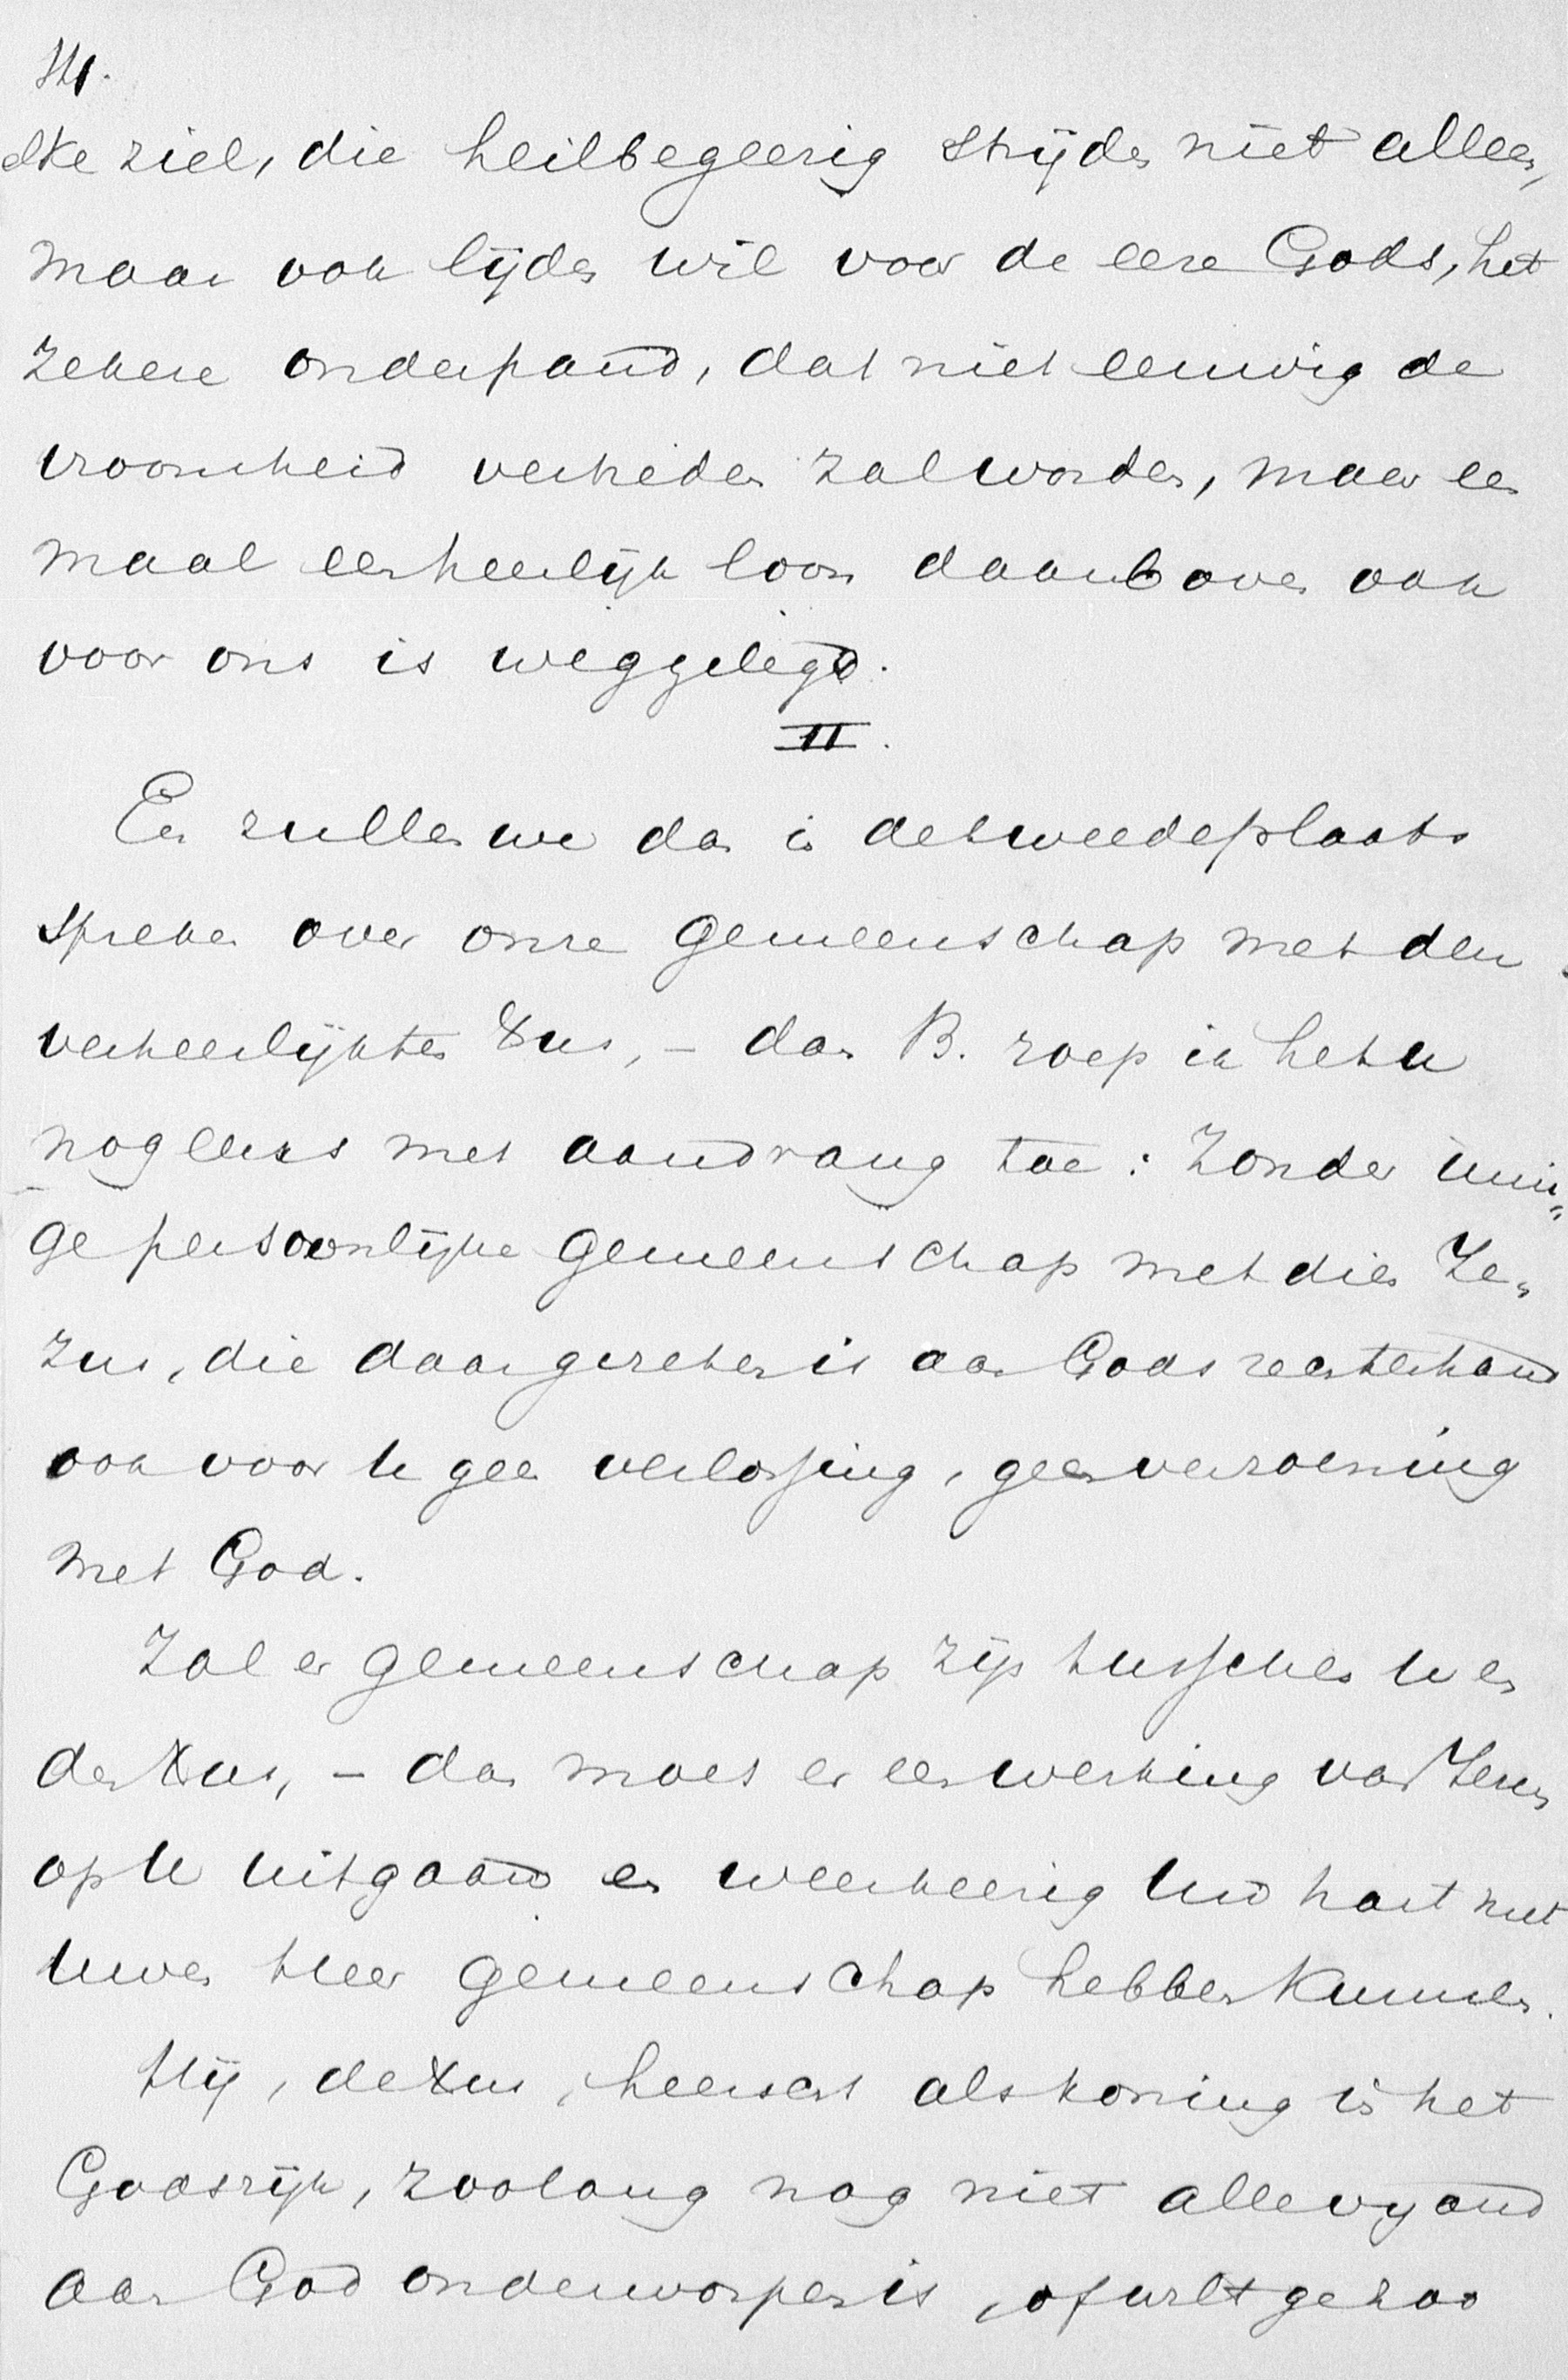 14.
elke ziel, die heilbegeerig strijden niet alleen,
maar ook lijden wil voor de eere Gods, het
zekere onderpand, dat niet eeuwig de
vroomheid vertreden zal worden, maar een
maal een heerlijk loon daarboven ook
voor ons is weggelegd.
II.
En zullen we dan in de tweede plaats
spreken over onze gemeenschap met den
verheerlijkten Xus, – dan B. roep ik het u
nog eens met aandrang toe: Zonder inni„
ge persoonlijke gemeenschap met dien Je„
zus, die daar gezeten is aan Gods rechterhand
ook voor U geen verlossing, geen verzoening
met God.
Zal er gemeenschap zijn tusschen U en
den Xus, – dan moet er een werking van Jezus
op U uitgaan en weerkeerig Uw hart met
Uwen Heer gemeenschap hebben kunnen.
Hij, de Xus, heerscht als koning in het
Godsrijk, zoolang nog niet alle vijand
aan God onderworpen is, of wilt ge zoo